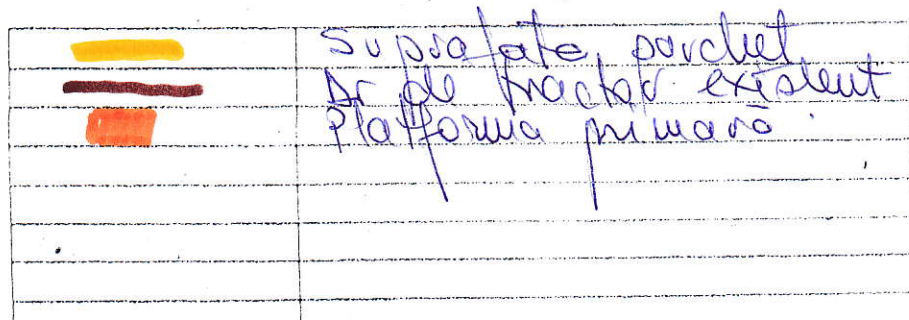 Suprafata parchet
Dr de tractor existent
Platforma primară